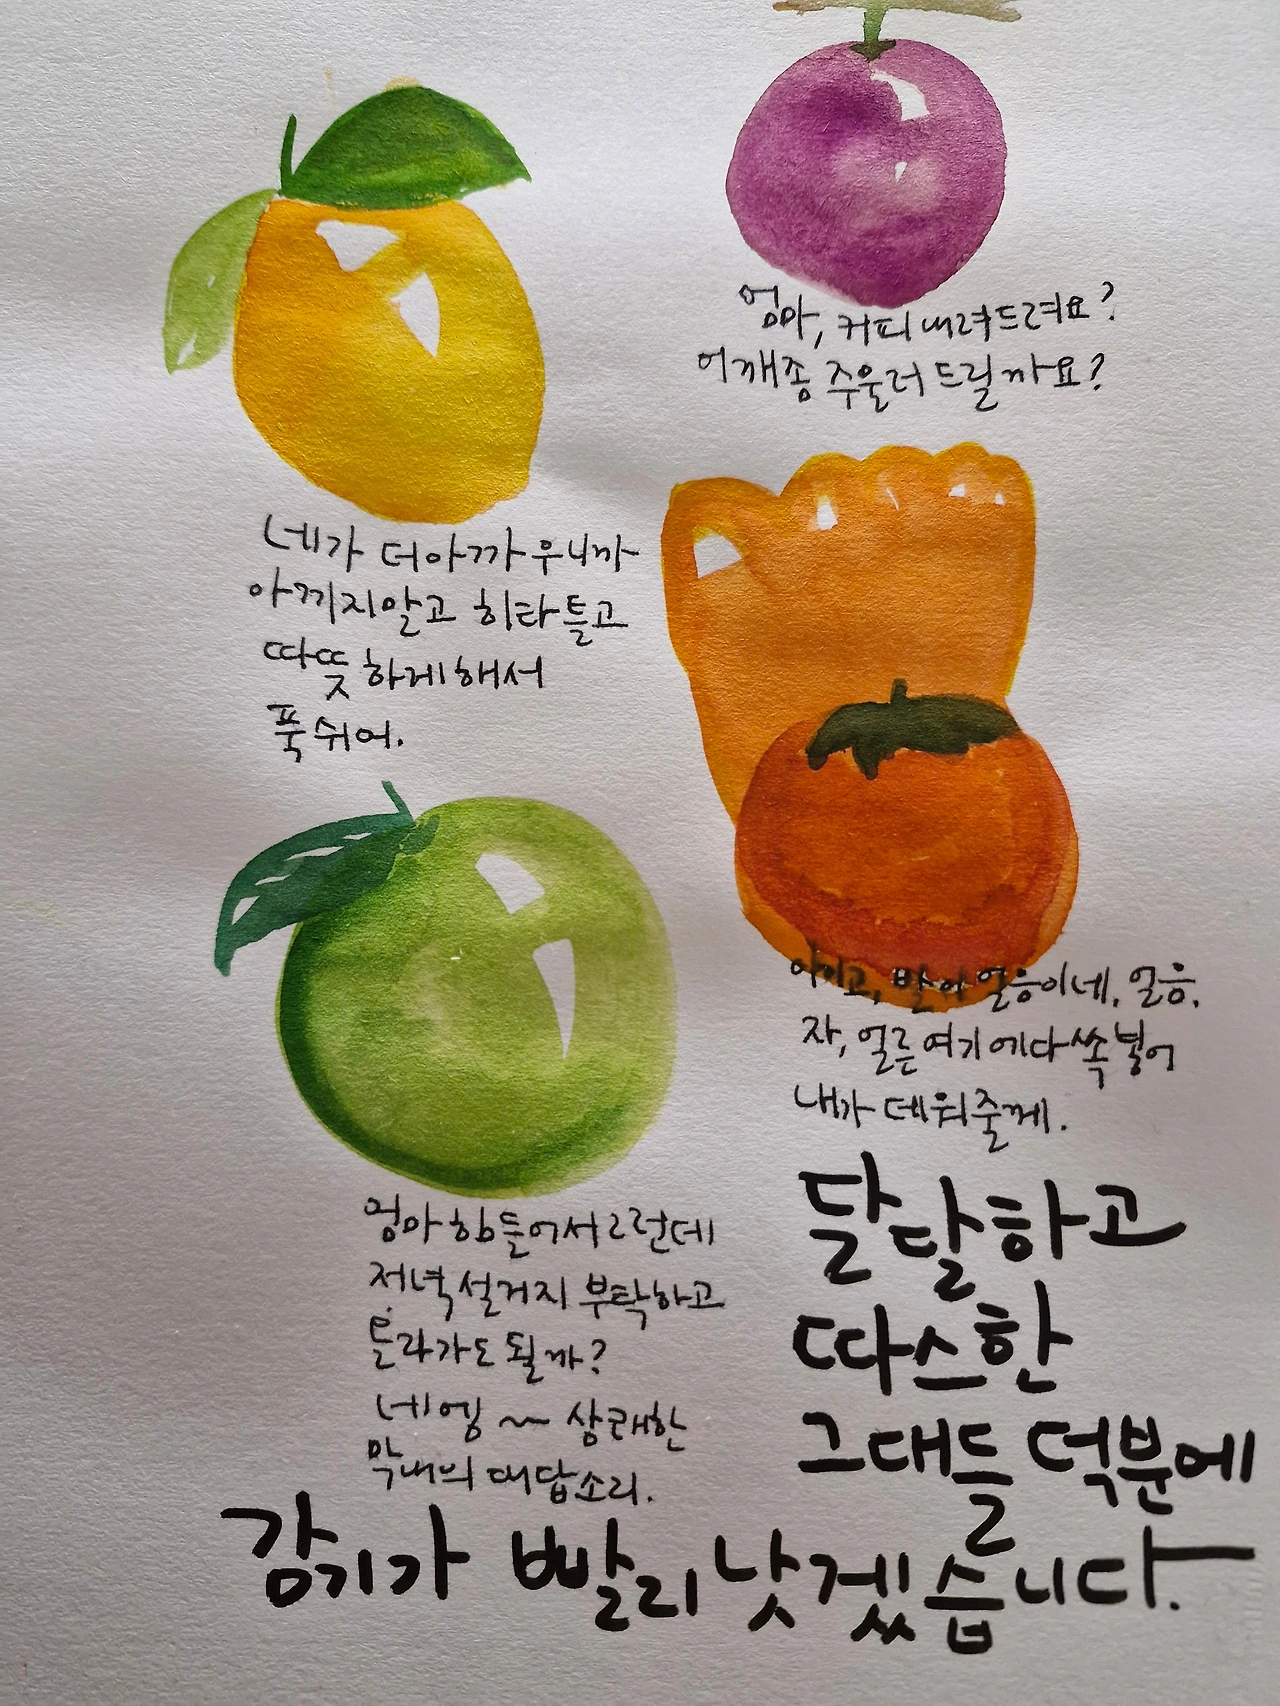 엄마, 커피 내려드려요?
어깨좀 주물러 드릴까요?
네가 더 아까우니까
아끼지말고 히타틀고
따뜻하게 해서
푹 쉬어.
아이고, 발이 얼음이네, 얼음.
자, 얼른 여기에다 쏙 넣어
내가 데워줄게.
엄마 힘들어서 그런데
저녁 설거지 부탁하고
올라가도 될까?
네엥~ 상쾌한
막내의 대답소리.
달달하고
따스한
그대들 덕분에
감기가 빨리 낫겠습니다.